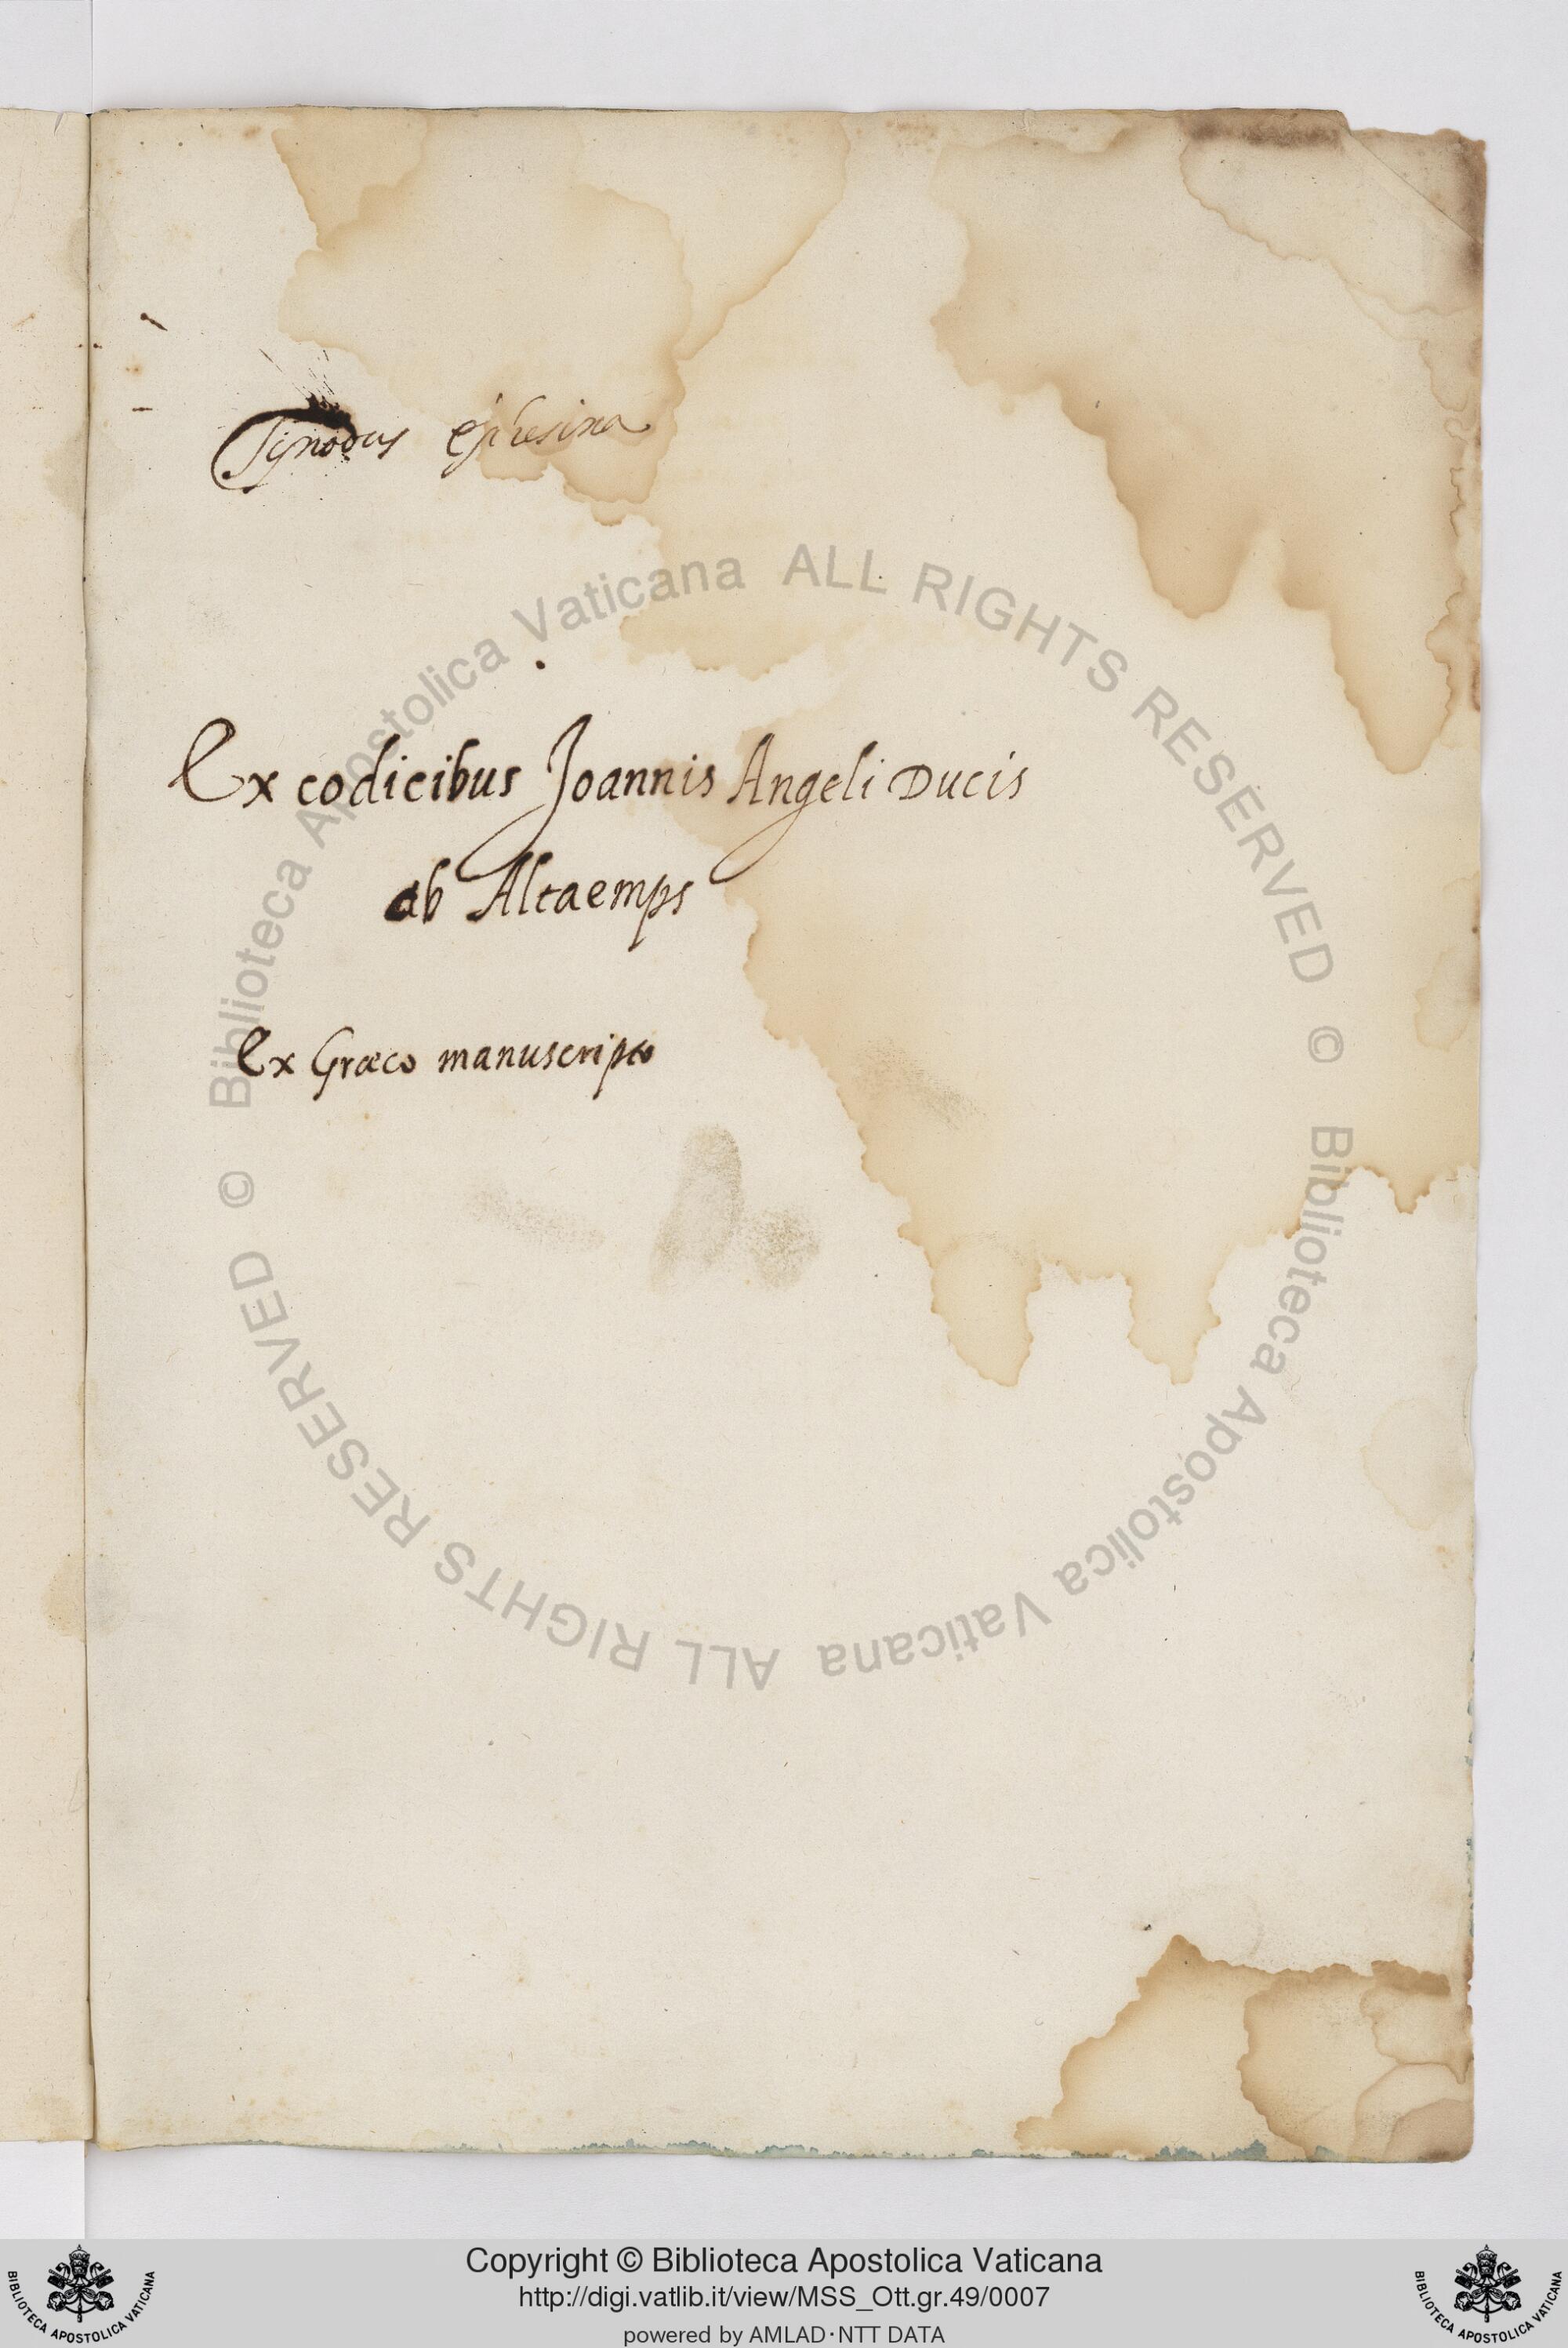 Synodus Ephesina
Ex codicibus Joannis Angeli Ducis
ab Altaemps
Ex Græco manuscripto
© Biblioteca Apostolica Vaticana ALL RIGHTS RESERVED
© Biblioteca Apostolica Vaticana ALL RIGHTS RESERVED
Copyright © Biblioteca Apostolica Vaticana
http://digi.vatlib.it/view/MSS_Ott.gr.49/0007
powered by AMLAD·NTT DATA
BIBLIOTECA APOSTOLICA VATICANA
BIBLIOTECA APOSTOLICA VATICANA